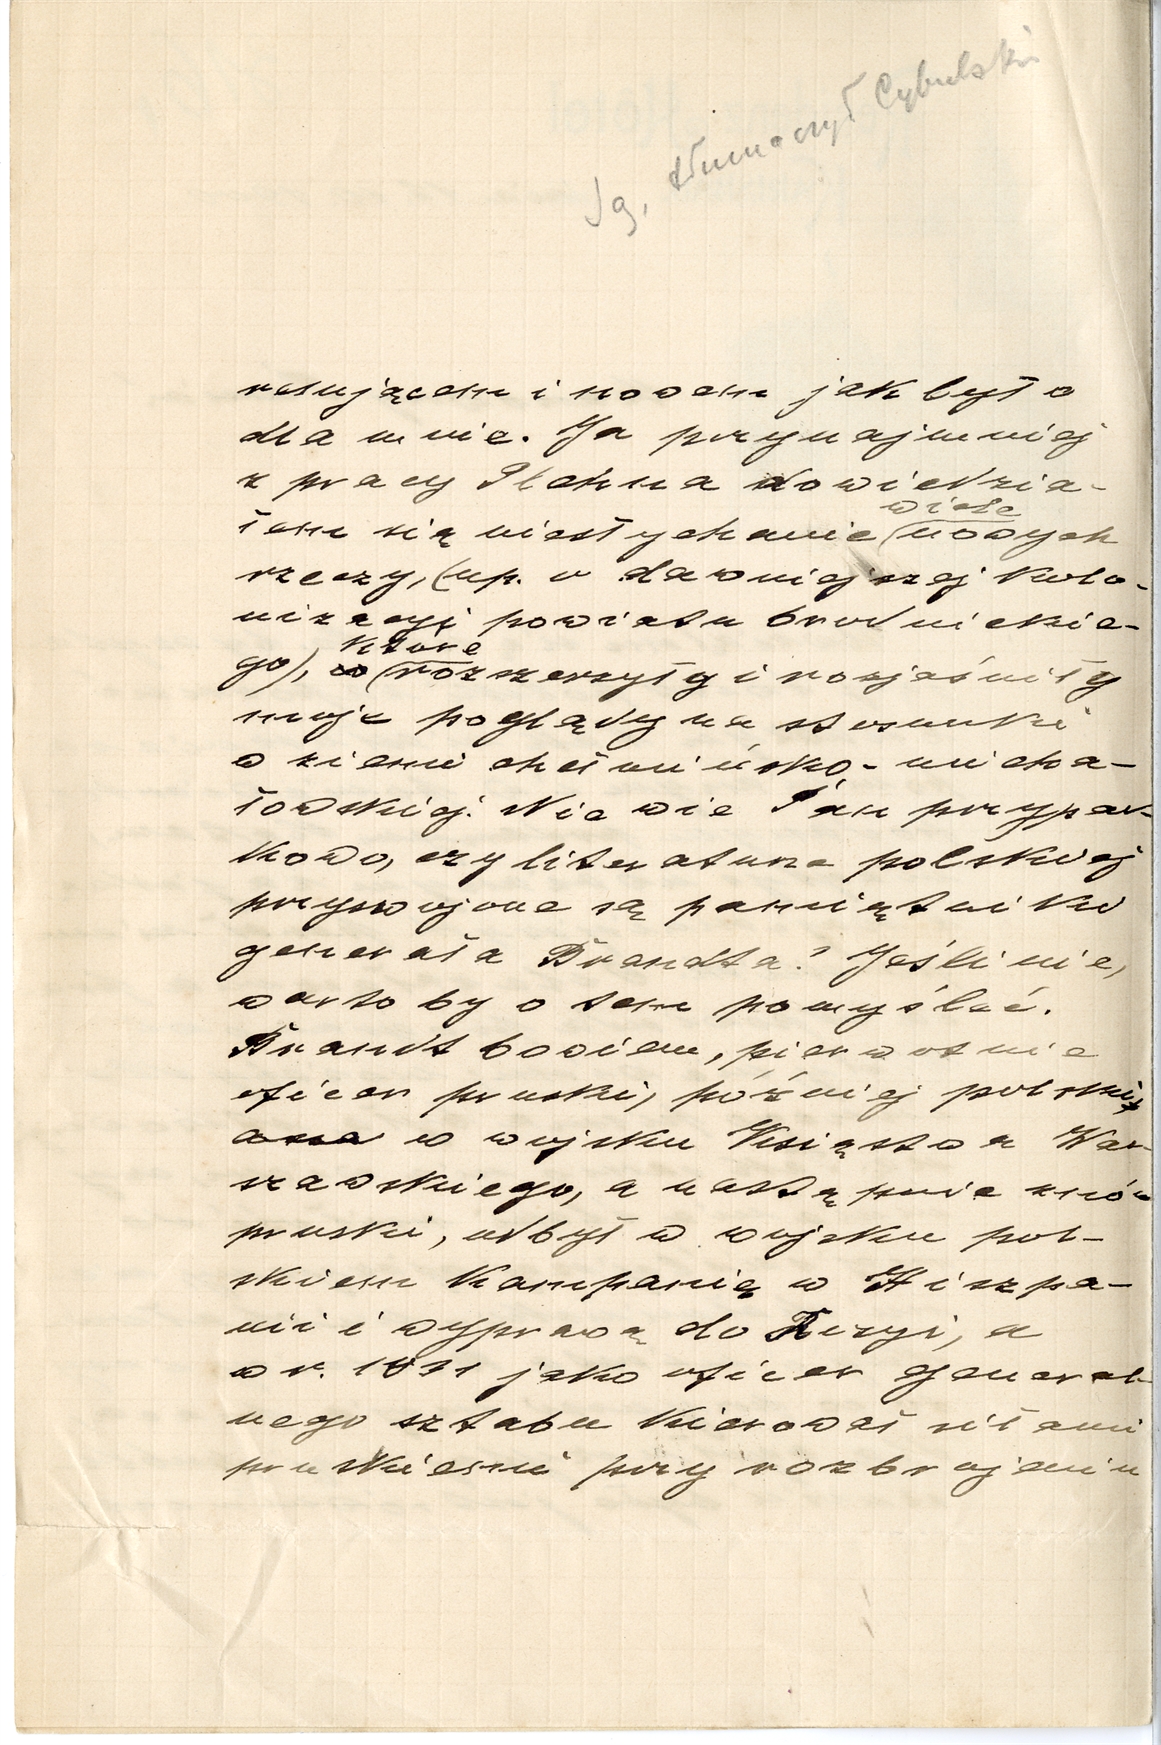 Ig. tłumaczył Cybulski
resującem i nowem jak było
dla mnie. Ja przynajmniej
z pracy Plehna dowiedzia-
wiele
łem się niesłychanie nowych
rzeczy, (np. o dawniejszej kolo-
nizacyi powiatu brodnickie-
które
go), rozszerzyły i rozjaśniły
moje poglądy na stosunki
w ziemi chełmińsko-micha-
łowskiej. Nie wie Pan przypad-
kowo, czy literaturze polskiej
przyswojone są pamiętniki
generała Brandta? Jeśli nie,
warto by o tem pomyśleć.
Brandt bowiem, pierwotnie
oficer pruski, później polski,
w wojsku Księstwa War-
szawskiego, a następnie znów
pruski, odbył w wojsku pol-
skiem kampanię w Hiszpa-
nii i wyprawę do Rosyi, a
w r. 1831 jako oficer general-
nego sztabu kierował siłami
pruskiemi przy rozbrojeniu